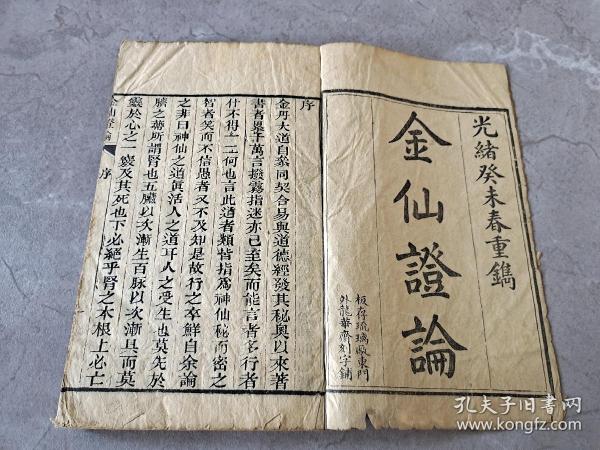 光緒癸未春重鐫
金仙證論
板存琉璃厰東門
外龍華齋刻字鋪
序
金丹大道自參同契合易與道德經發其秘奧以來著
書者累千萬言撥霧指迷亦已至矣而能言者多行者
什不得一二何也言此道者類皆指為神仙秘而密之
智者笑而不信愚者又不及知是故行之卒鮮自余論
之非曰神仙之道眞活人之道耳人之受生也莫先於
臍之蒂所謂腎也五臟以次漸生百脉以次漸具而莫
靈於心之一竅及其死也下必絕乎腎之本根上必亡
金仙證論 序
孔夫子旧书网
www.kongfz.com